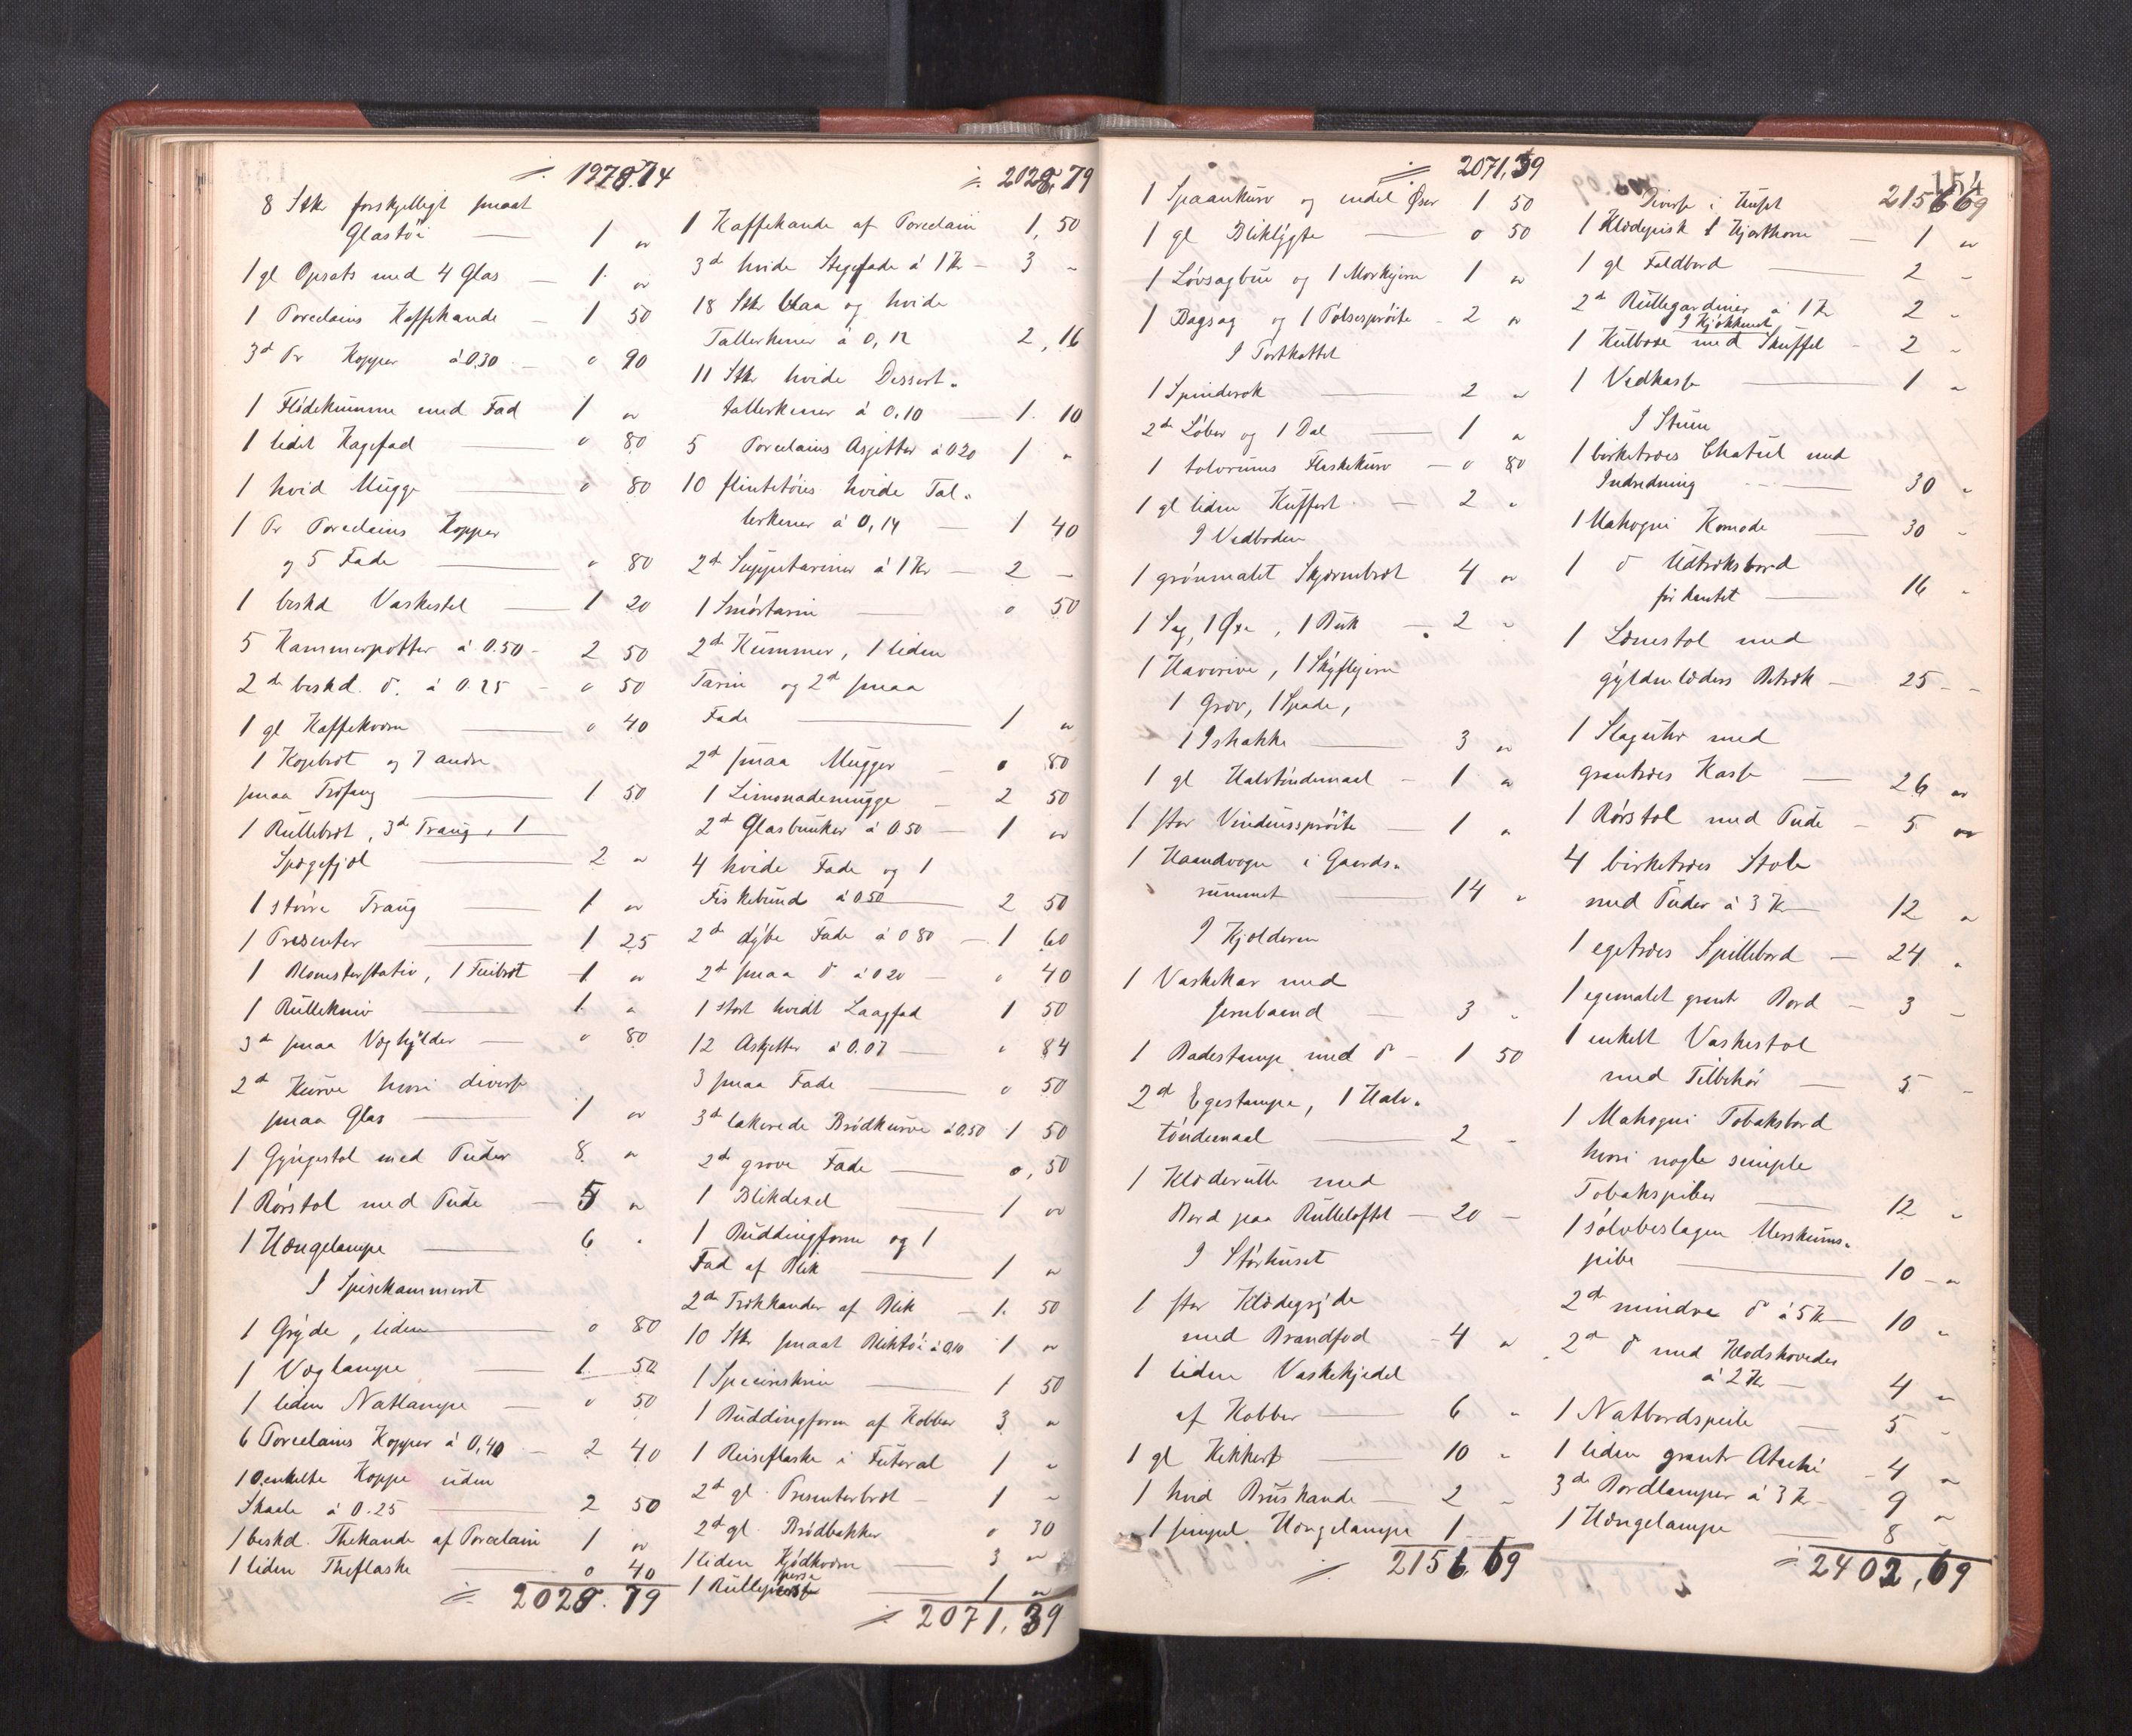 ÷ 1978.74
8 Stkr forskjelligt smaat
Glastöi — 1 "
1 gl Opsats med 4 Glas — 1 "
1 Porcelains Kaffekande — 1 50
3de Pr Kopper à 0.30 — 0 90
1 Flödekumme med Fad 1 "
1 lidet Kagefad — 0 80
1 hvid Mugge — 0 80
1 Pr Porcelains Kopper
og 5 Fade — 0 80
1 beskd Vaskestel — 1 20
5 Kammerpotter à 0.50 - 2 50
2de beskd. do. à 0.25 - 0 50
1 gl Kaffekværn — 0 40
1 Kagebræt og 7 andre
smaa Træfang — 1 50
1 Rullebræt, 3de Traug, 1
Spegefjæl — 2 "
1 större Traug — 1 "
1 Presenter — 1 25
1 Blomsterstativ, 1 Fuibræt 1 "
1 Rullekniv — 1 "
3de smaa Væghylder — 0 80
2de Kurve hvori diverse
smaa Glas — 1 "
1 Gyngestol med Puder 8 "
1 Rörstol med Pude — 5 "
1 Hængelampe — 6 "
I Spisekammeret
1 Gryde, liden — 0 80
1 Væglampe — 1 50
1 liden Natlampe — 0 50
6 Porcelains Kopper à 0,40 — 2 40
10 enkelte Koppe uden
Skaale à 0.25 — 2 50
1 beskd. Thekande af Porcelain 1 "
1 liden Theflaske — 0 40
÷ 2028.79
÷ 2028,79
1 Kaffekande af Porcelain 1,50
3de hvide Stegefade à 1 Kr — 3 "
18 Stkr blaa og hvide
Tallerkener à 0,12 2,16
11 Stkr hvide Dessert-
tallerkener à 0,10 — 1. 10
5 Porcelains Asjetter à 0 20 1 "
10 flintetöies hvide Tal-
lerkener à 0,14 — 1 40
2de Suppetariner à 1 Kr — 2 —
1 Smörtarin — 0 50
2de Kummer, 1 liden
Tarin og 2de smaa
Fade — 1 "
2de smaa Mugger — 0 80
1 Limonademugge — 2 50
2de Glasbunker à 0 50 — 1 "
4 hvide Fade og 1
Fiskebund à 0 50 — 2 50
2de dybe Fade à 0 80 — 1 60
2de smaa do à 0 20 — 0 40
1 stort hvidt Laagfad 1 50
12 Askjetter à 0.07 — 0 84
3 smaa Fade — 0 50
3de lakerede Brödkurve à 0,50 1 50
2de grove Fade — 0,50
1 Blikdexel — 1 "
1 Puddingform og 1
Fad af Blik — 1 "
2de Trækkander af Blik — 1. 50
10 Stkr smaat Bliktöi à 0,10 1 "
1 Speceriskrin — 1 50
1 Puddingform af Kobber 3 "
1 Reiseflaske i Futeral 1 "
2de gl. Presenterbræt — 1 "
2de gl. Brödbakker 0 30
1 liden Kjödkværn — 3 "
1 Rullepresse — 1 "
÷ 2071,39
÷ 2071,39
1 Spaankurv og endel Öser 1 50
1 gl Bliklygte — 0 50
1 Lövsagbue og 1 Morkjern 1 "
1 Bagsag og 1 Pölsespröite — 2 "
I Tortkattet
1 Spinderok — 2 "
2de Löber og 1 Dal — 1 "
1 tolvrums Flaskekurv — 0 80
1 gl liden Kuffert — 2 "
I Vedboden
1 grönmalet Skjærmbræt 4 "
1 Sag, 1 Öxe, 1 Buk — 2 "
1 Haverive, 1 Skyffeljern
1 Grev, 1 Spade,
1 Ishakke — 3 "
1 gl Halvtöndemaal — 1 "
1 stor Vinduesspröite — 1 "
1 Haandvogn i Gaards-
rummet — 14 "
I Kjælderen
1 Vaskekar med
Jernbaand — 3 "
1 Badestamp med do — 1 50
2de Egestampe, 1 Halv-
töndemaal — 2 "
1 Klæderulle med
Bord paa Rulleloftet — 20 —
I Störhuset
1 stor Klædegryde
med Brandfod — 4 "
1 liden Vaskekjedel
af Kobber — 6 "
1 gl Kikkert — 10 "
1 hvid Bruskande — 2 "
1 simpel Hængelampe 1
÷ 2156.69
154
Diverse i Huset 2156 69
1 Klædepisk 1 Hjorthorn — 1 "
1 gl Foldbord — 2 "
2de Rullegardiner à 1 Kr 2 "
I Kjökkenet
1 Kulboxe med Skuffel — 2 "
1 Vedkasse — 1 "
I Stuen
1 birketræes Chatul med
Indredning — 30 "
1 Mahogni Komode — 30 "
1 do Udtræksbord
firkantet — 16 "
1 Lænestol med
gyldenlæders Betræk — 25 —
1 Slaguhr med
grantræes Kasse — 26 "
1 Rörstol med Pude — 5 "
4 birketræes Stole
med Puder à 3 Kr — 12 "
1 egetræes Spillebord — 24 "
1 egemalet grantr Bord — 3 —
1 enkelt Vaskestol
med Tilbehör — 5 —
1 Mahogni Tobaksbord
hvori nogle simple
Tobakspiber — 12 "
1 sölvbeslagen Merskums-
pibe — 10 "
2de mindre do à 5 Kr — 10 "
2de do med Klodshoveder
à 2 Kr — 4 "
1 Natbordspeile — 5 "
1 liden grantr Atache — 4 "
3de Bordlamper à 3 Kr — 9 "
1 Hængelampe — 8
÷ 2402,69